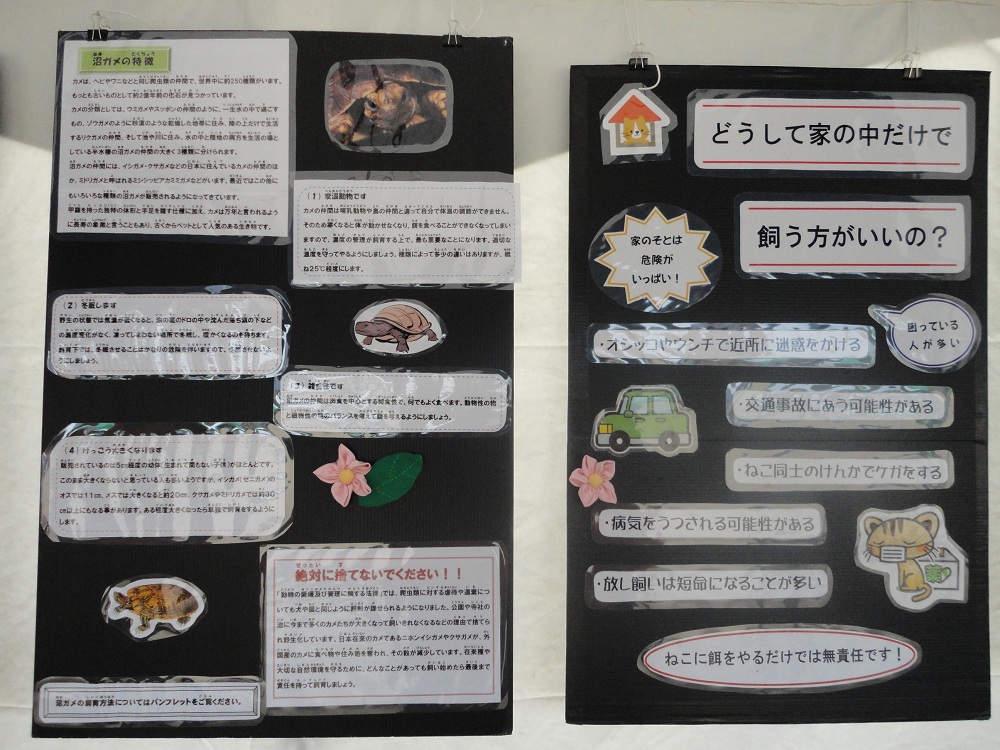 沼ガメの特徴
カメは、ヘビやワニなどと同じ爬虫類の仲間で、世界中に約250種類がいます。
もっとも古いものとして約2億年前の化石が見つかっています。
カメの分類としては、ウミガメやスッポンの仲間のように、一生水の中で過ごす
もの、ゾウガメのように砂漠のような乾燥した地帯に住み、陸の上だけで生活
するリクガメの仲間、そして池や川に住み、水の中と陸地の両方を生活の場と
している半水棲の沼ガメの仲間の大きく3種類に分けられます。
沼ガメの仲間には、イシガメ・クサガメなどの日本に住んでいるカメの仲間のほ
か、ミドリガメと呼ばれるミシシッピアカミミガメなどがいます。最近ではこの他に
もいろいろな種類の沼ガメが販売されるようになってきています。
甲羅を持った独特の体形と手足を隠す仕種に加え、カメは万年と言われるように
長寿の象徴と言うこともあり、古くからペットとして人気のある生き物です。
(1)変温動物です
カメの仲間は哺乳動物や鳥の仲間と違って自分で体温の調節ができません。
そのため寒くなると体が動かせなくなり、餌を食べることができなくなってしまい
ますので、温度の管理が飼育する上で、最も重要なことになります。適切な
温度を守ってやるようにしましょう。種類によって多少の違いはありますが、概
ね25℃程度にします。
(2)冬眠します
野生の状態では気温が低くなると、池の底のドロの中や沈んだ落ち葉の下など
の温度変化がなく、凍ってしまわない場所で冬眠し、暖かくなるのを待ちます。
飼育下では、冬眠させることはかなりの危険を伴いますので、冬眠させないよ
うにしましょう。
(3)雑食性です
沼ガメの仲間は肉食を中心とする雑食性で、何でもよく食べます。動物性の餌
と植物性の餌のバランスを考えて餌を与えるようにしましょう。
(4)けっこう大きくなります
販売されているのは5cm程度の幼体(生まれて間もない子供)がほとんどです。
このまま大きくならないと思っている人も多いようですが、イシガメ(ゼニガメ)の
オスでは11cm、メスでは大きくなると約20cm、クサガメやミドリガメでは約30
cm以上にもなる事があります。ある程度大きくなったら単独で飼育をするように
します。
絶対に捨てないでください!!
「動物の愛護及び管理に関する法律」では、爬虫類に対する虐待や遺棄につ
いても犬や猫と同じように罰則が課せられるようになりました。公園や寺社の
池に今まで多くのカメたちが大きくなって飼いきれなくなるなどの理由で捨てら
れ野生化しています。日本在来のカメであるニホンイシガメやクサガメが、外
国産のカメに食べ物や住み処を奪われ、その数が減少しています。在来種や
大切な自然環境を守るために、どんなことがあっても飼い始めたら最後まで
責任を持って飼育しましょう。
沼ガメの飼育方法についてはパンフレットをご覧ください。
どうして家の中だけで
飼う方がいいの?
家のそとは
危険が
いっぱい!
困っている
人が多い
・オシッコやウンチで近所に迷惑をかける
・交通事故にあう可能性がある
・ねこ同士のけんかでケガをする
・病気をうつされる可能性がある
・放し飼いは短命になることが多い
薬
ねこに餌をやるだけでは無責任です!